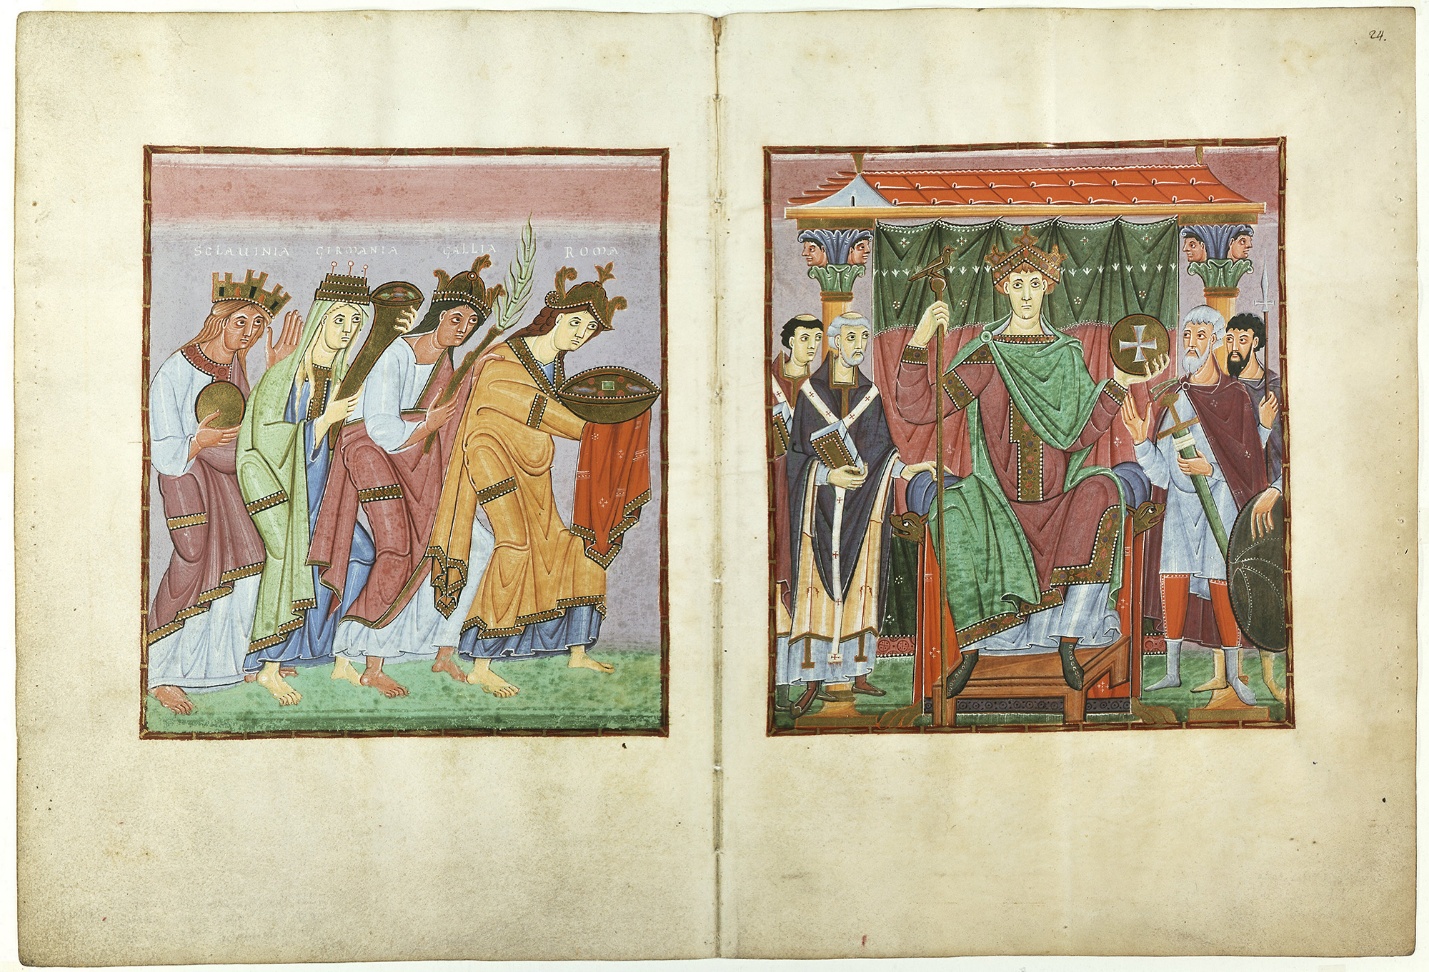 24.
SCLAUINIA GERMANIA GALLIA ROMA